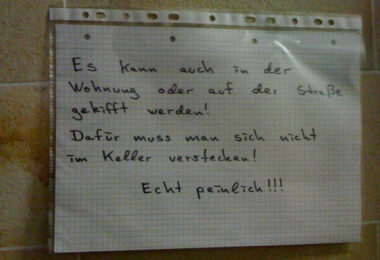 Es kann auch in der
Wohnung oder auf der Straße
gekifft werden!
Dafür muss man sich nicht
im Keller verstecken!
Echt peinlich!!!